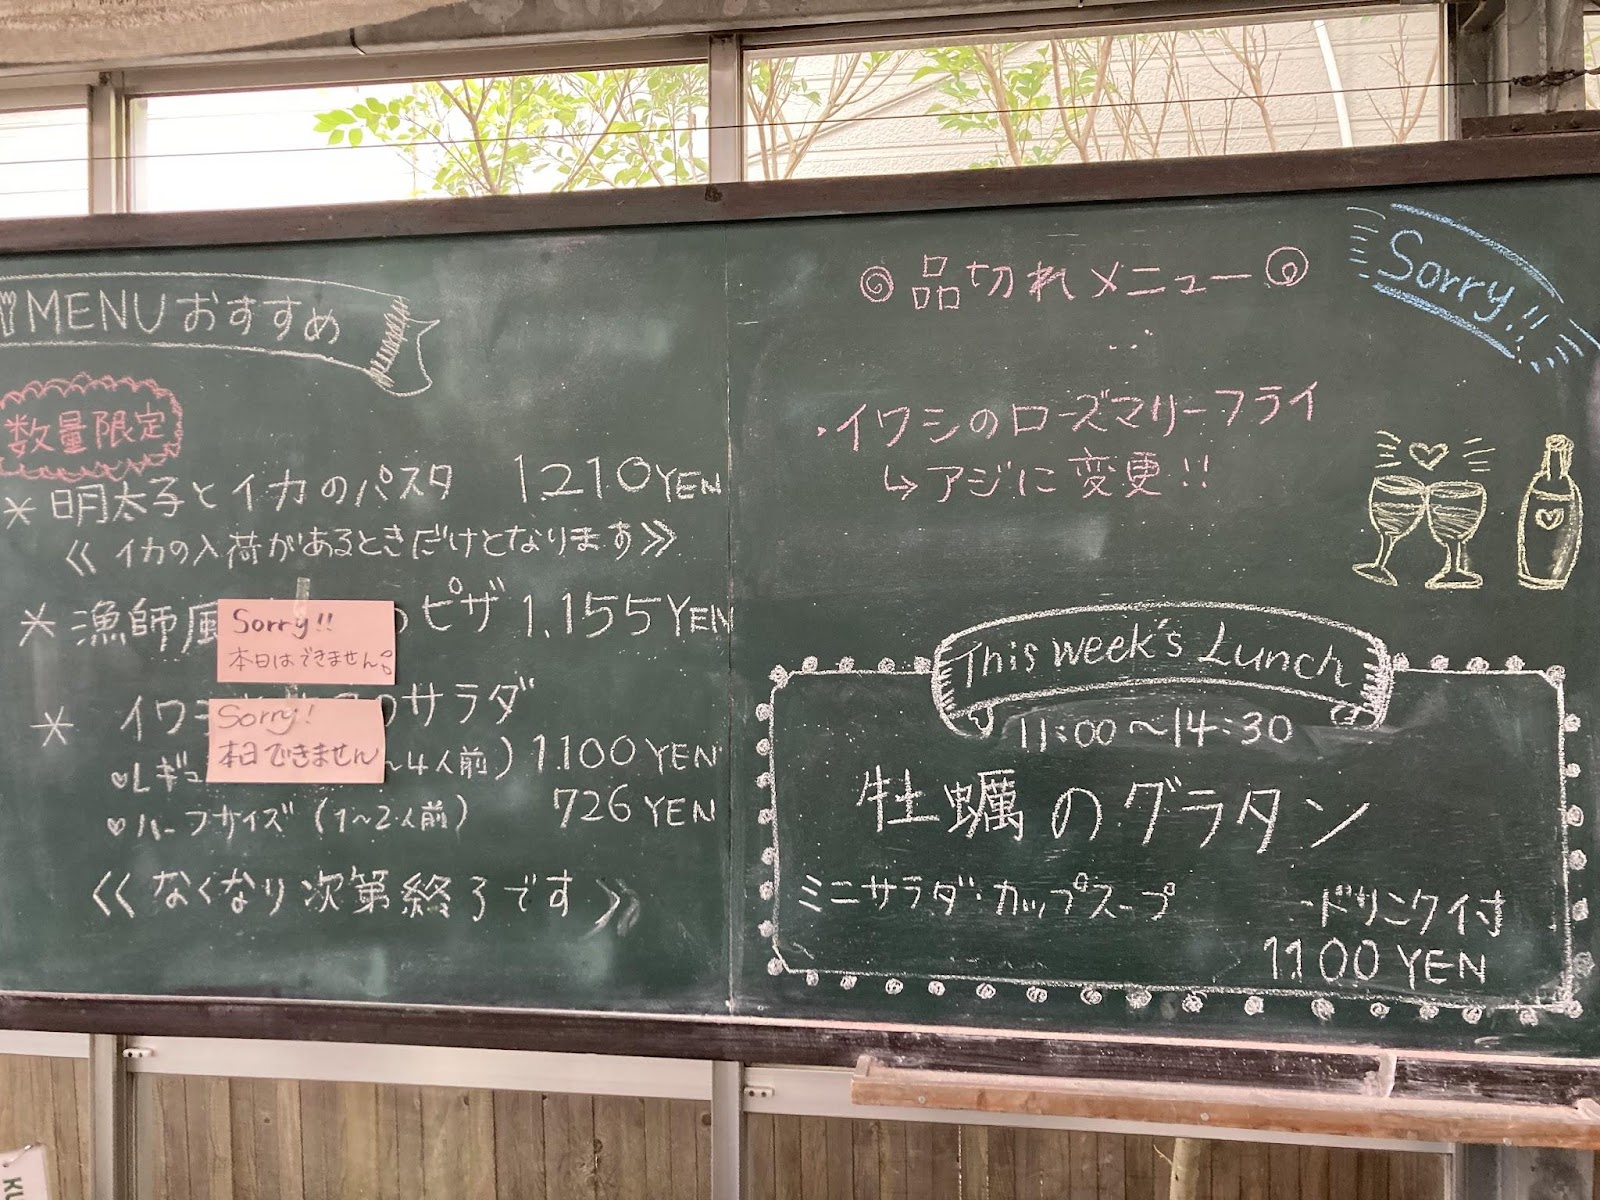 MENUおすすめ
数量限定
*明太子とイカのパスタ 1.210YEN
《イカの入荷があるときだけとなります》
*漁師風 のピザ 1.155YEN
Sorry!!
本日はできません。
* イワシ のサラダ
Sorry!
本日できません
♡レギュ ~4人前) 1.100YEN
♡ハーフサイズ(1~2人前) 726YEN
《なくなり次第終了です》
◎品切れメニュー◎
Sorry!!
・イワシのローズマリーフライ
↳アジに変更!!
This week's Lunch
11:00~14:30
牡蠣のグラタン
ミニサラダ・カップスープ
ードリンク付
1.100YEN
KU